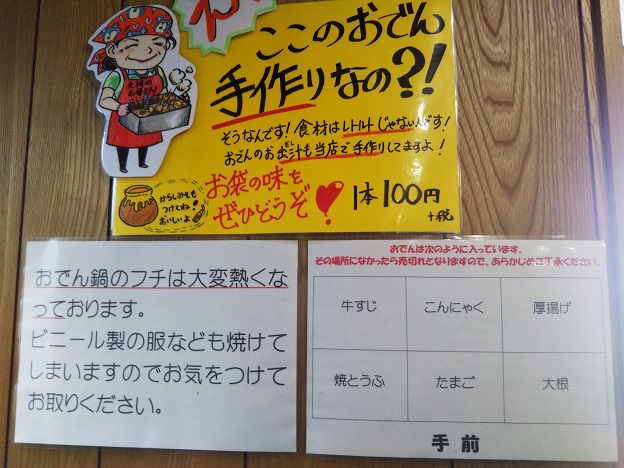 ここのおでん
手作りなの?!
そうなんです!食材はレトルトじゃないんです!
おでんのお出汁も当店で手作りしてますよ!
だし
お袋の味を
ぜひどうぞ!
1本100円
+税
からしみそも
つけてね!
おいしいよ
おでん鍋のフチは大変熱くな
っております。
ビニール製の服なども焼けて
しまいますのでお気をつけて
お取りください。
おでんは次のように入っています。
その場所になかったら売切れとなりますので、あらかじめご了承ください。
牛すじ こんにゃく 厚揚げ
焼とうふ たまご 大根
手前